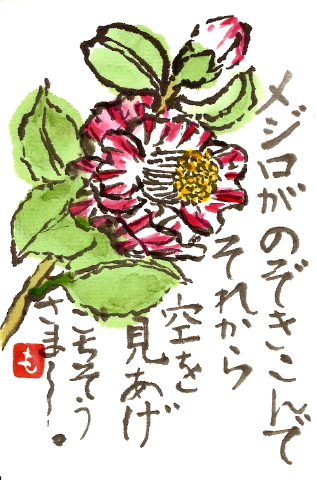 メジロがのぞきこんで
それから
空を
見あげ
ごちそう
さま〜。